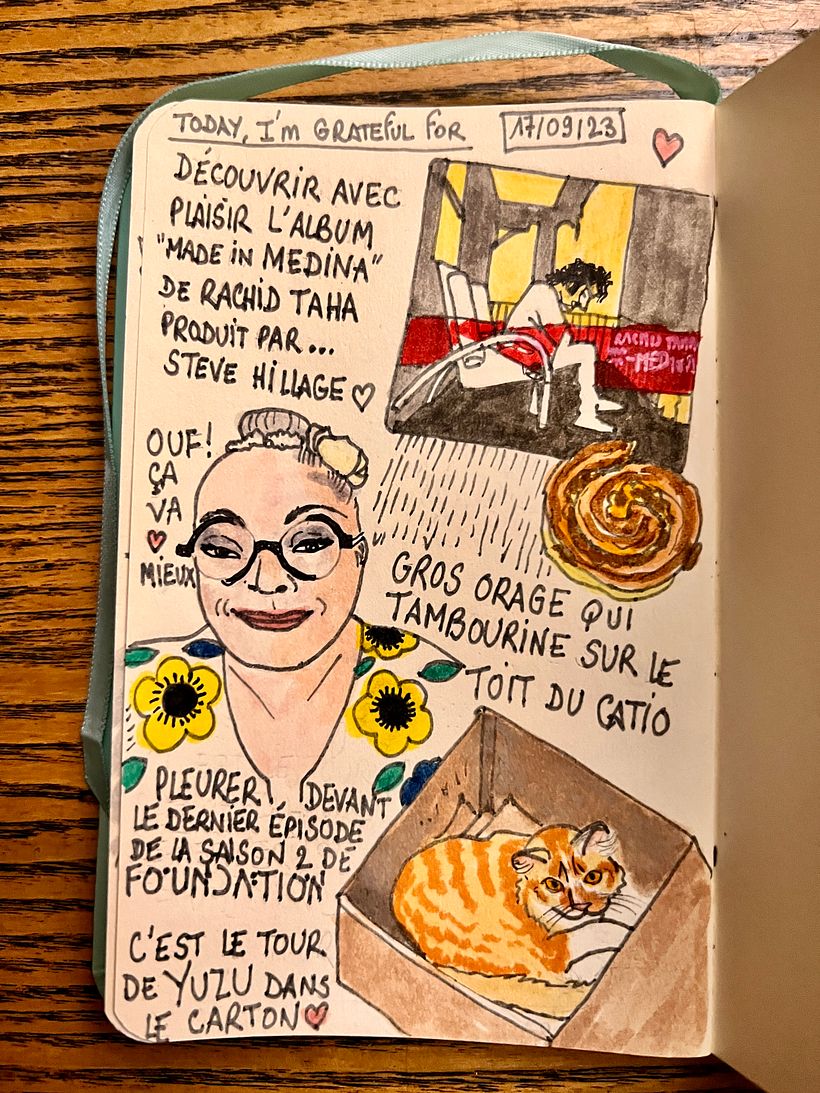 TODAY, I'M GRATEFUL FOR
17/09/23
DÉCOUVRIR AVEC
PLAISIR L'ALBUM
"MADE IN MEDINA"
DE RACHID TAHA
PRODUIT PAR...
STEVE HILLAGE
RACHID TAHA
MEDINA
OUF!
ÇA
VA
MIEUX
GROS ORAGE QUI
TAMBOURINE SUR LE
TOIT DU CATIO
PLEURER DEVANT
LE DERNIER ÉPISODE
DE LA SAISON 2 DE
FOUNDATION
C'EST LE TOUR
DE YUZU DANS
LE CARTON